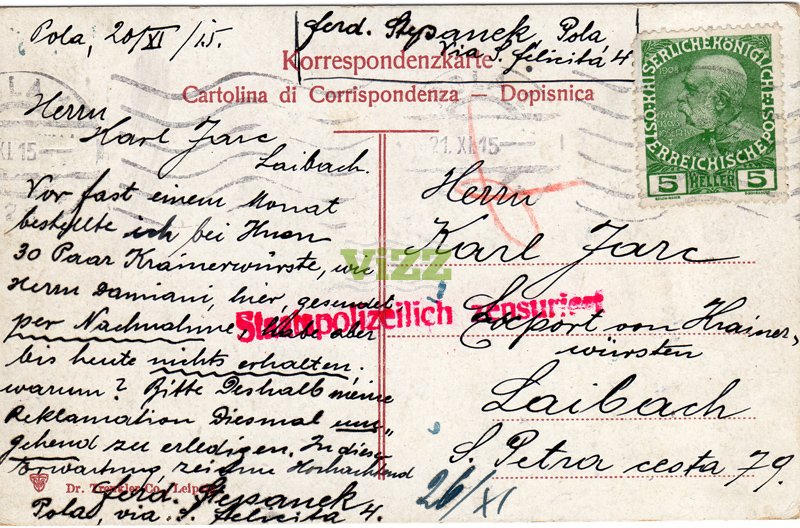 Pola, 20/XI/15.
Ferd. Stepanek, Pola
Via S. Felicitá 4.
Korrespondenzkarte
Cartolina di Corrispondenza — Dopisnica
Herrn
Karl Jarc
Laibach.
Vor fast einem Monat
bestellte ich bei Ihnen
30 Paar Krainerwürste, wie
Herrn Damiani, hier, gesendet
per Nachnahme, habe aber
bis heute nichts erhalten,
warum? Bitte deshalb meine
Reklamation diesmal um-
gehend zu erledigen. In dieser
Erwartung, zeichne Hochachtend
Ferd. Stepanek
Pola, via S. Felicitá 4.
Dr. Trenkler Co., Leipzig
21. XI. 15
XI 15
Herrn
Karl Jarc
Export von Krainer-
würsten
Laibach
S. Petra cesta 79.
26/XI
Staatspolizeilich zensuriert
ViZZ
KAISERLICHE KÖNIGLICHE
ÖSTERREICHISCHE
1908
5 HELLER 5